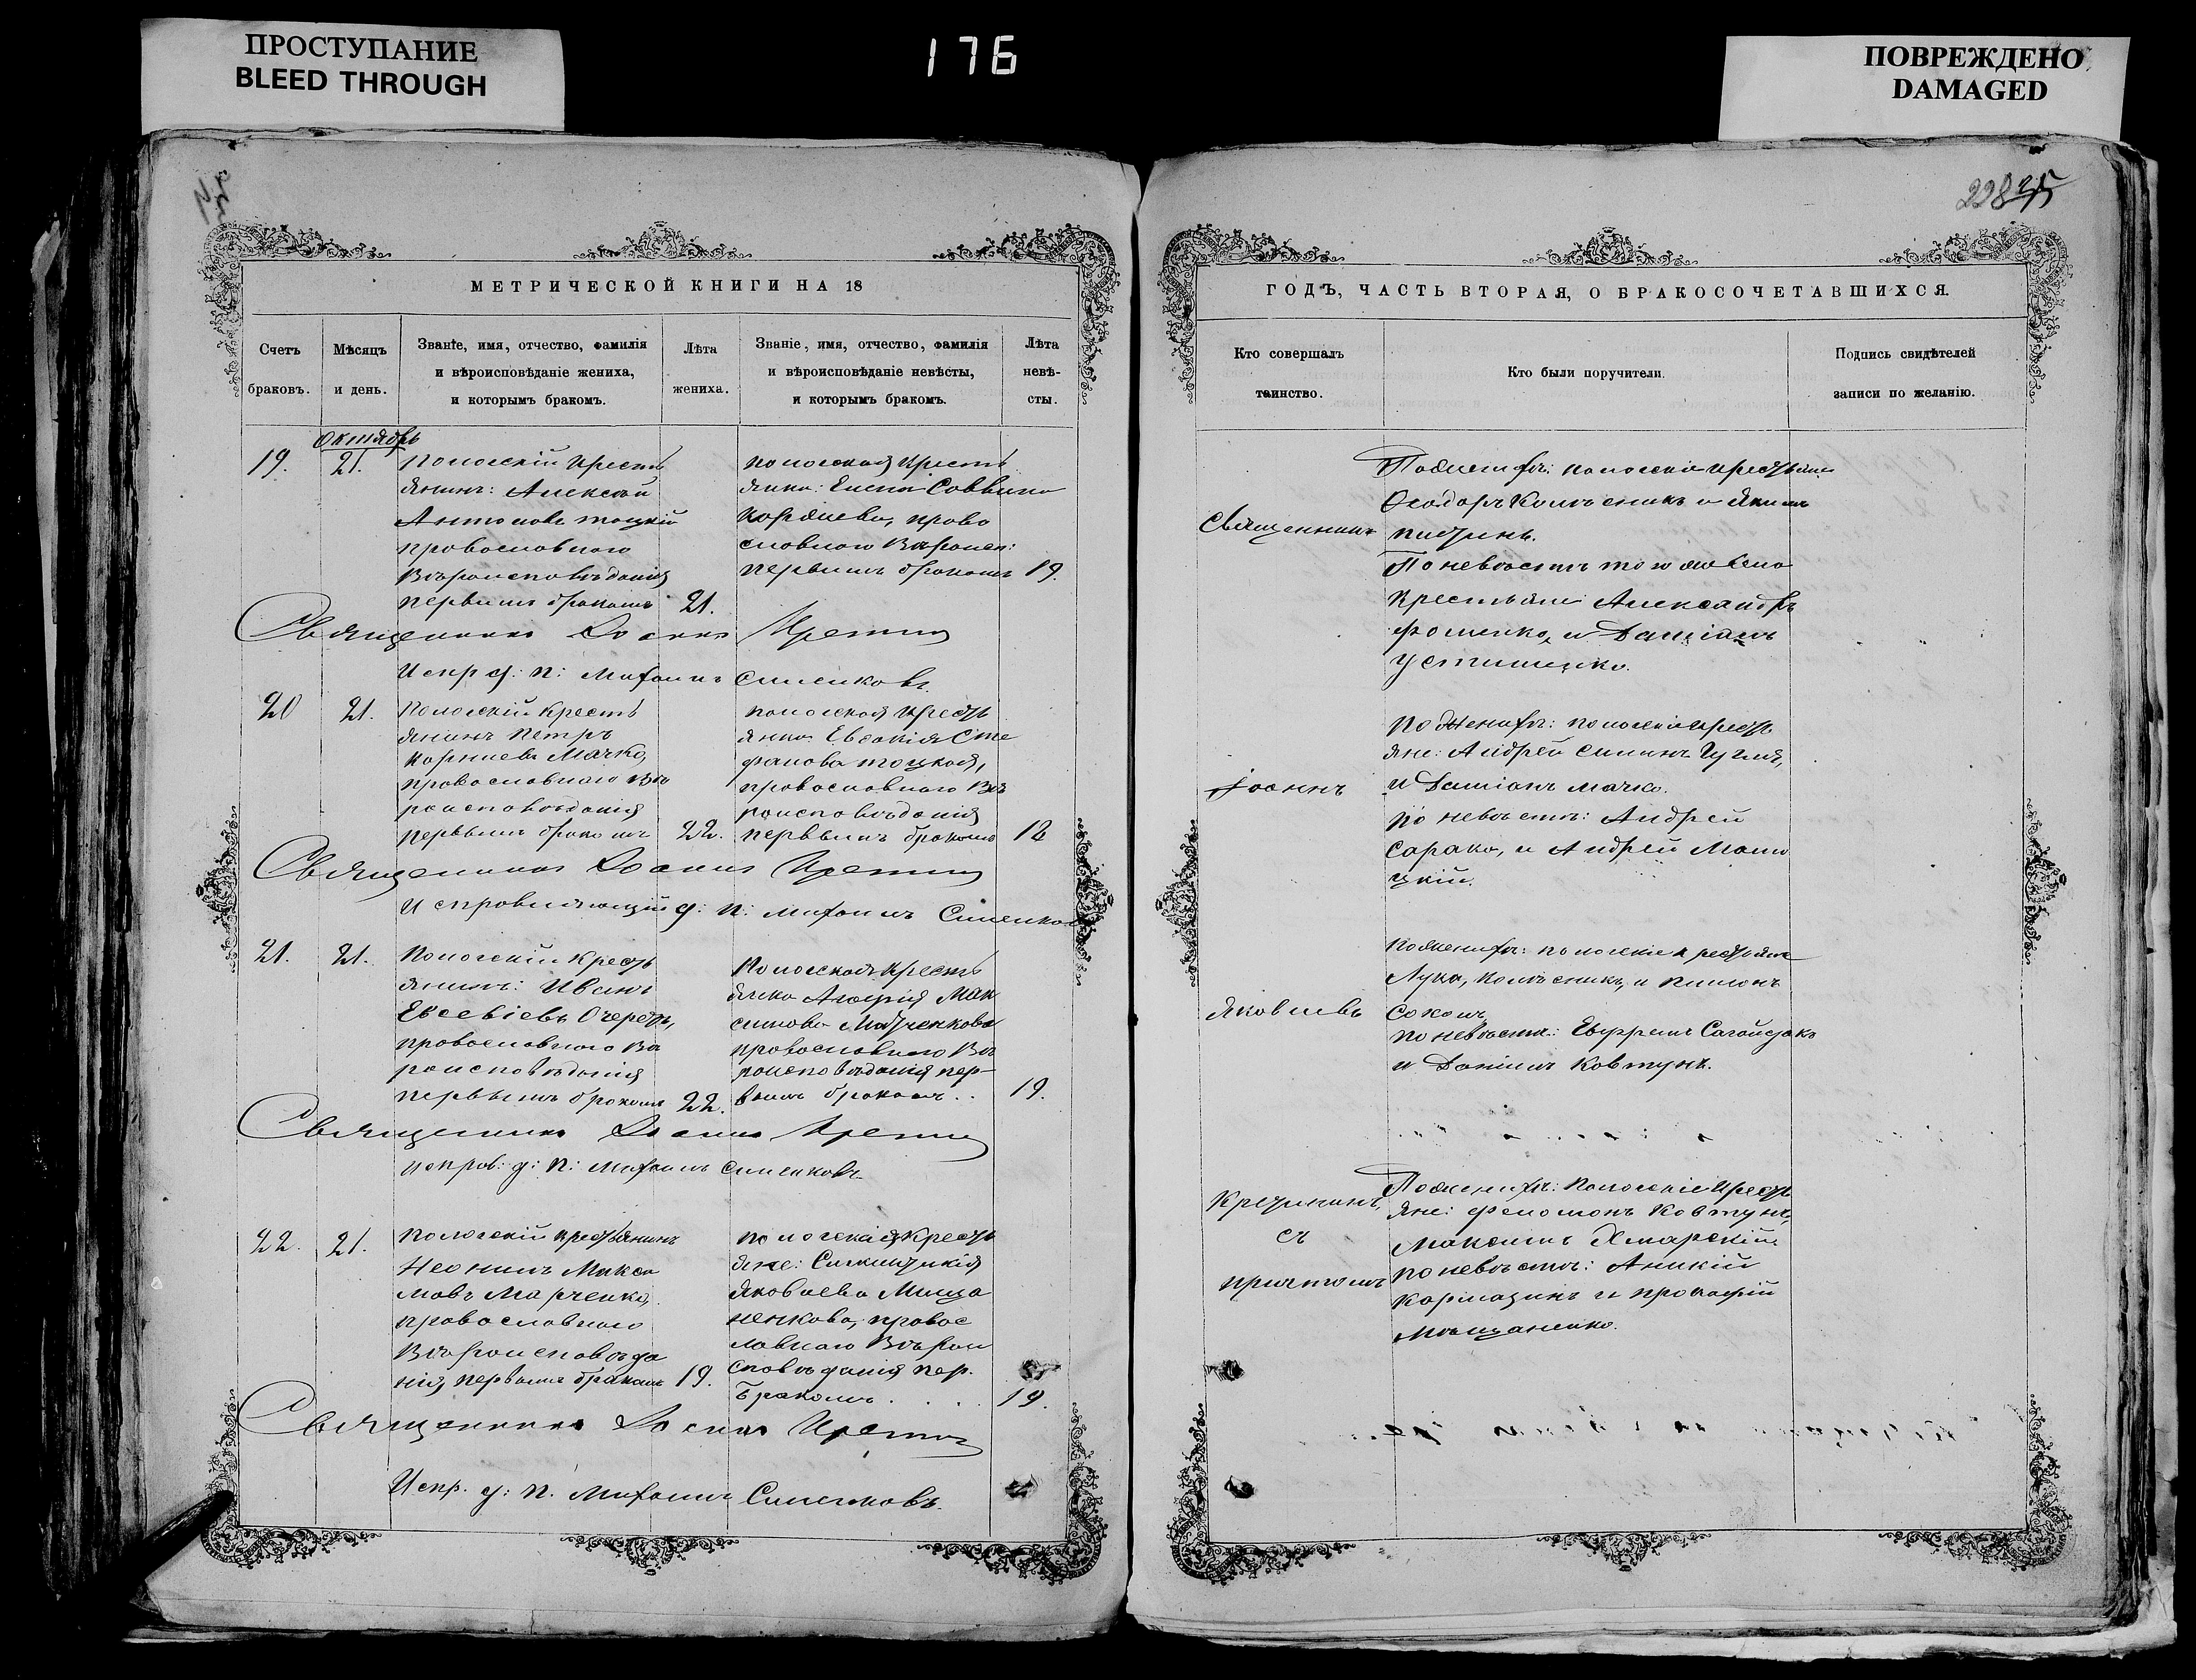 ПРОСТУПАНИЕ
BLEED THROUGH
176
ПОВРЕЖДЕНО
DAMAGED
228
МЕТРИЧЕСКОЙ КНИГИ НА 18
Счетъ браковъ.
Мѣсяцъ и день.
Званіе, имя, отчество, фамилія
и вѣроисповѣданіе жениха,
и которымъ бракомъ.
Лѣта жениха.
Званіе, имя, отчество, фамилія
и вѣроисповѣданіе невѣсты,
и которымъ бракомъ.
Лѣта невѣ-
сты.
Октябрь
19.
21.
Пологскій кресть
янинъ: Алексѣй
Антоновъ тоцкій
православнаго
Вѣроисповѣданія
первымъ бракомъ
21.
пологская кресть
янка: Елена Саввина
православнаго Вѣроисп:
первымъ бракомъ
19.
Священникъ Іоаннъ
Испр д: п: Михаилъ
20
21.
Пологскій кресть
янинъ Петръ
Корніевъ Мачко,
православнаго вѣ
роисповѣданія
первымъ бракомъ
22.
пологская кресть
янка Евдокія Сте
фанова тоцкая,
православнаго Вѣ
роисповѣданія
первымъ бракомъ
18
Священникъ Іоаннъ
Исправляющій д: п: Михаилъ
21.
21.
Пологскій кресть
янинъ: Иванъ
Евсевіевъ Очередь,
православнаго Вѣ
роисповѣданія
первымъ бракомъ
22.
Пологская кресть
янка Мак
симова Марченкова
православнаго Вѣ
роисповѣданія пер-
вымъ бракомъ . .
19.
Священникъ Іоаннъ
исправ: д: п: Михаилъ
22.
21.
Пологскій крестьянинъ
Макси
мовъ Марченко,
православнаго
Вѣроисповѣда
нія, первымъ бракомъ
19.
пологская кресть
яне:
Яковлева Мища
ненкова, правос
лавнаго Вѣрои
сповѣданія пер.
бракомъ . . . .
19.
Священникъ Іоаннъ
Испр. д: п. Михаилъ
ГОДЪ, ЧАСТЬ ВТОРАЯ, О БРАКОСОЧЕТАВШИХСЯ.
Кто совершалъ
таинство.
Кто были поручители.
Подпись свидѣтелей
записи по желанію.
Священникъ
Іоаннъ
Яковлевъ
съ
причтомъ
По жених: пологскіе крестьяне
Ѳеодоръ Колѣсникъ и Якимъ
По невѣстѣ того же села
крестьяне Александръ
фоменко, и Даміанъ
Устименко.
По жених: пологскіе кресть
яне: Андрей
и Даміанъ мачко.
по невѣстѣ: Андрей
Сарака, и Андрей
цкій.
По жених: пологскіе крестьяне
Лука, Колѣсникъ, и
Соколъ
по невѣстѣ: Сагайдакъ
и Даніилъ Ковтунъ.
По жених: Пологскіе кресть
яне: филимонъ Ковтунъ,
Максимъ Хмарскій
по невѣстѣ: Аникій
Кармазинъ и прокофій
Мѣщаненко.